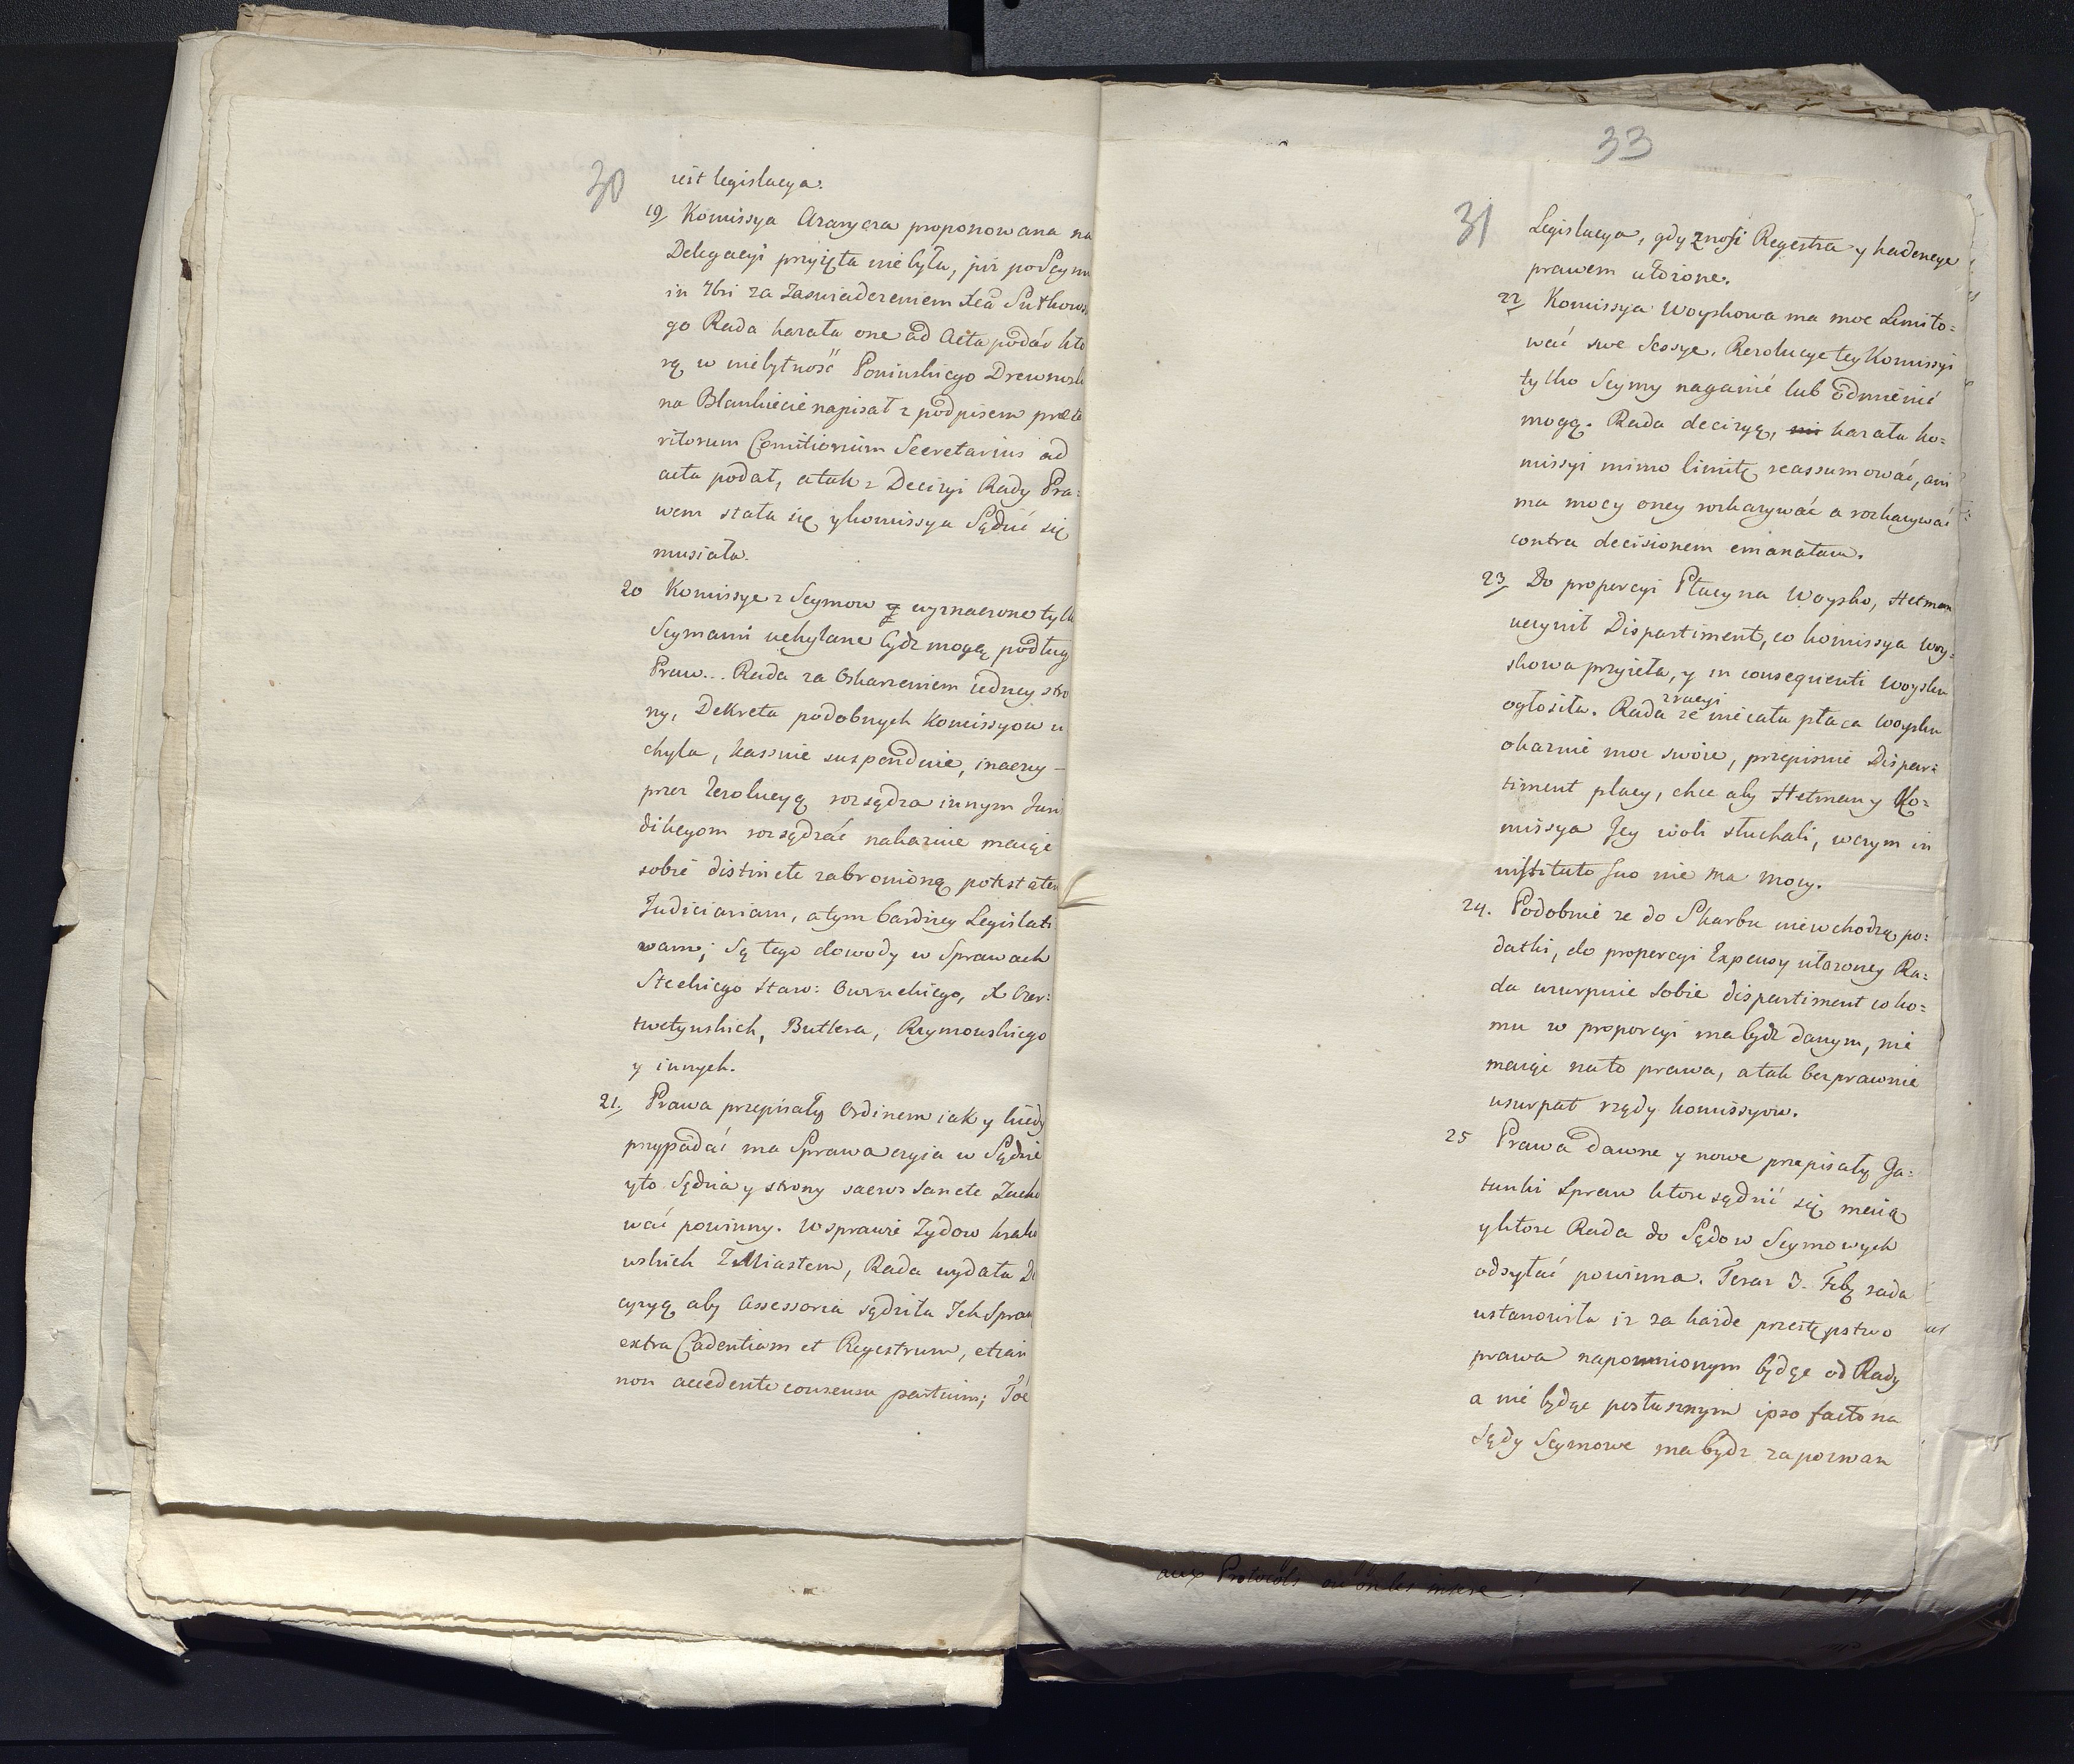 30
iest legislacya.
19, Komissya Aranżera proponowana na
Delegacyi przyięta nie była, iuż po Seym
in 7bri za Zaswiadczeniem Xcia Sułkows
go Rada kazała one ad Acta podać kto
rą w niebytność Ponińskiego Drewnosk
na Blankiecie napisał z podpisem præte
ritorum Comitiorum Secretarius ad
acta podał, a tak z Decizyi Rady Pra=
wem stała się y komissya Sądzić się
musiała.
20 Komissye z Seymow wyznaczone tylk
Seymami uchylane bydz mogą podług
Praw... Rada za Oskarzeniem iedney stro
ny, Dekreta podobnych Komissyow u
chyla, kassuie suspenduie, inaczy –
przez Rezolucyą rozsądza innym Juri
dikcyom rozsądzać nakazuie maiąc
sobie distincte zabronioną potestatem
Judiciariam, a tym bardziey Legislati
wam; Są tego dowody w Sprawach
Steckiego Staro: Owruckiego, X Czer:
twetynskich, Butlera, Rzymowskiego
y innych.
21, Prawa przepisały Ordinem iak y kiedy
przypadać ma Sprawa czyia w Sądzie
y to Sędzia y strony sacro sancte Zacho
wać powinny. W sprawie Zydow krako
wskich Z Miastem, Rada wydała De
cyzyą aby Assessoria sądziła Ich Spraw
extra Cadentiam et Regestrum, etiam
non accedente consensu partium; Toć
33
31
Legislacya, gdy znosi Regestra y kadencye
prawem ułożone.
22, Komissya Woyskowa ma moc Limito=
wać swe Sessye. Rezolucye tey Komissyi
tylko Seymy naganić lub odmienić
mogą. Rada decizyą, ni kazała ko=
missyi mimo limitę reassumować, ani
ma mocy oney rozkazywać a rozkazywać
contra decisionem emanatam.
23, Do proporcyi Płacy na Woysko, Hetman
uczynił Dispartiment, co komissya Woy=
skowa przyieła, y in consequenti Woysku
ogłosiła. Rada z racyi że nie cała płaca Woysku
okaznie moc swoie, przepisuie Dispar=
timent płacy, chce aby Hetman y Ko=
missya Jey woli słuchali, w czym in
instituto suo nie ma mocy.
24. Podobnie że do Skarbu nie wchodzą po=
datki, do proporcyi Expensy ułożoney Ra=
da uzurpuie sobie dispartiment co ko=
mu w proporcyi ma bydz danym, nie
maiąc na to prawa, a tak bezprawnie
usurpat rządy komissyow.
25 Prawa dawne y nowe przepisały Ga=
tunki Spraw ktore sądzić się maią
y ktore Rada do Sądow Seymowych
odsyłać powinna. Teraz 3. Feb. rada
ustanowiła iz za kazde przestępstwo
prawa napomnionym będąc od Rady
a nie będąc posłusznym ipso facto na
Sądy Seymowe ma bydz zapozwan
aux Protocols où on les insere